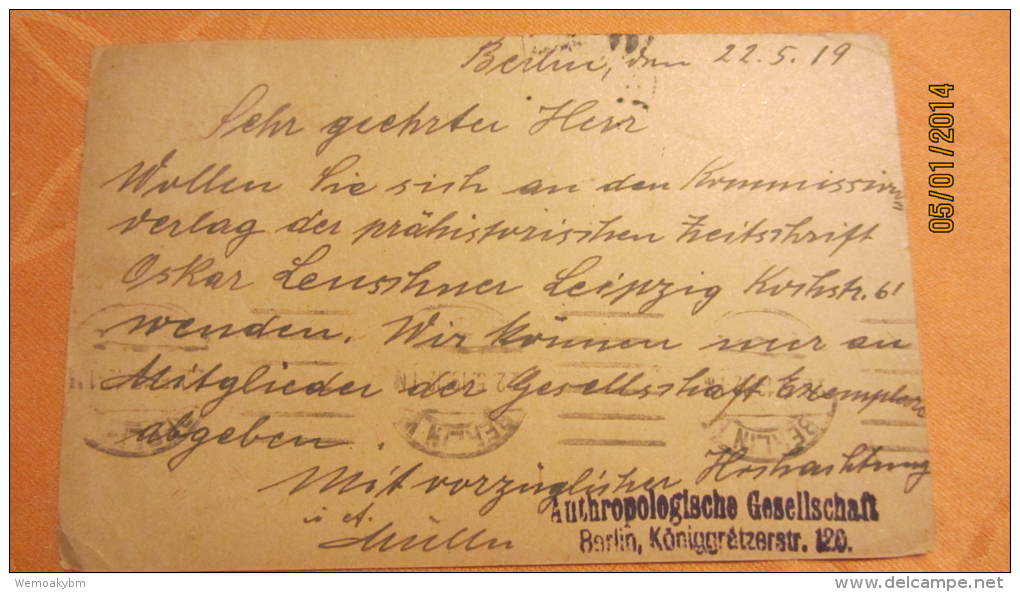 Berlin, den 22.5.19
Sehr geehrter Herr
Wollen Sie sich an den Kommissions=
verlag der prähistorischen Zeitschrift
Oskar Leuschner Leipzig Kochstr. 6
wenden. Wir können nur an
Mitglieder der Gesellschaft Exemplare
abgeben.
Mit vorzüglicher Hochachtung
i. A.
Anthropologische Gesellschaft
Berlin, Königgrätzerstr. 120.
BERLIN
BERLIN
05/01/2014
Wemoakybm
www.delcampe.net